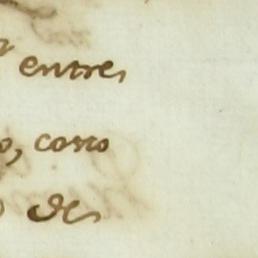 entre
o, corro
de